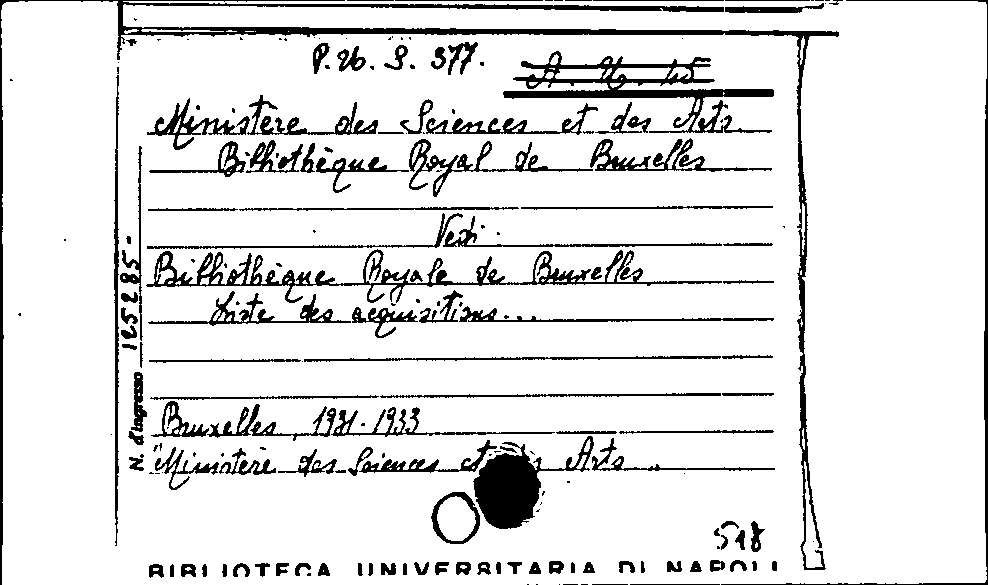 P. 26. S. 377.
A. 26. 45
Ministère des Sciences et des Arts.
Bibliothèque Royal de Bruxelles
Vedi:
Bibliothèque Royale de Bruxelles.
Liste des acquisitions...
N. d'ingresso 125285-
Bruxelles, 1931-1933
"Ministère des Sciences et Arts"
518
BIBLIOTECA UNIVERSITARIA DI NAPOLI